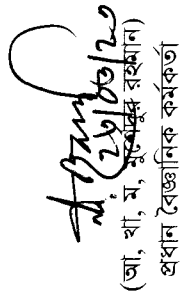 ২৩/০৩/২৩
(আ, খা, ম, মুর্শেদুর রহমান)
প্রধান বৈজ্ঞানিক কর্মকর্তা